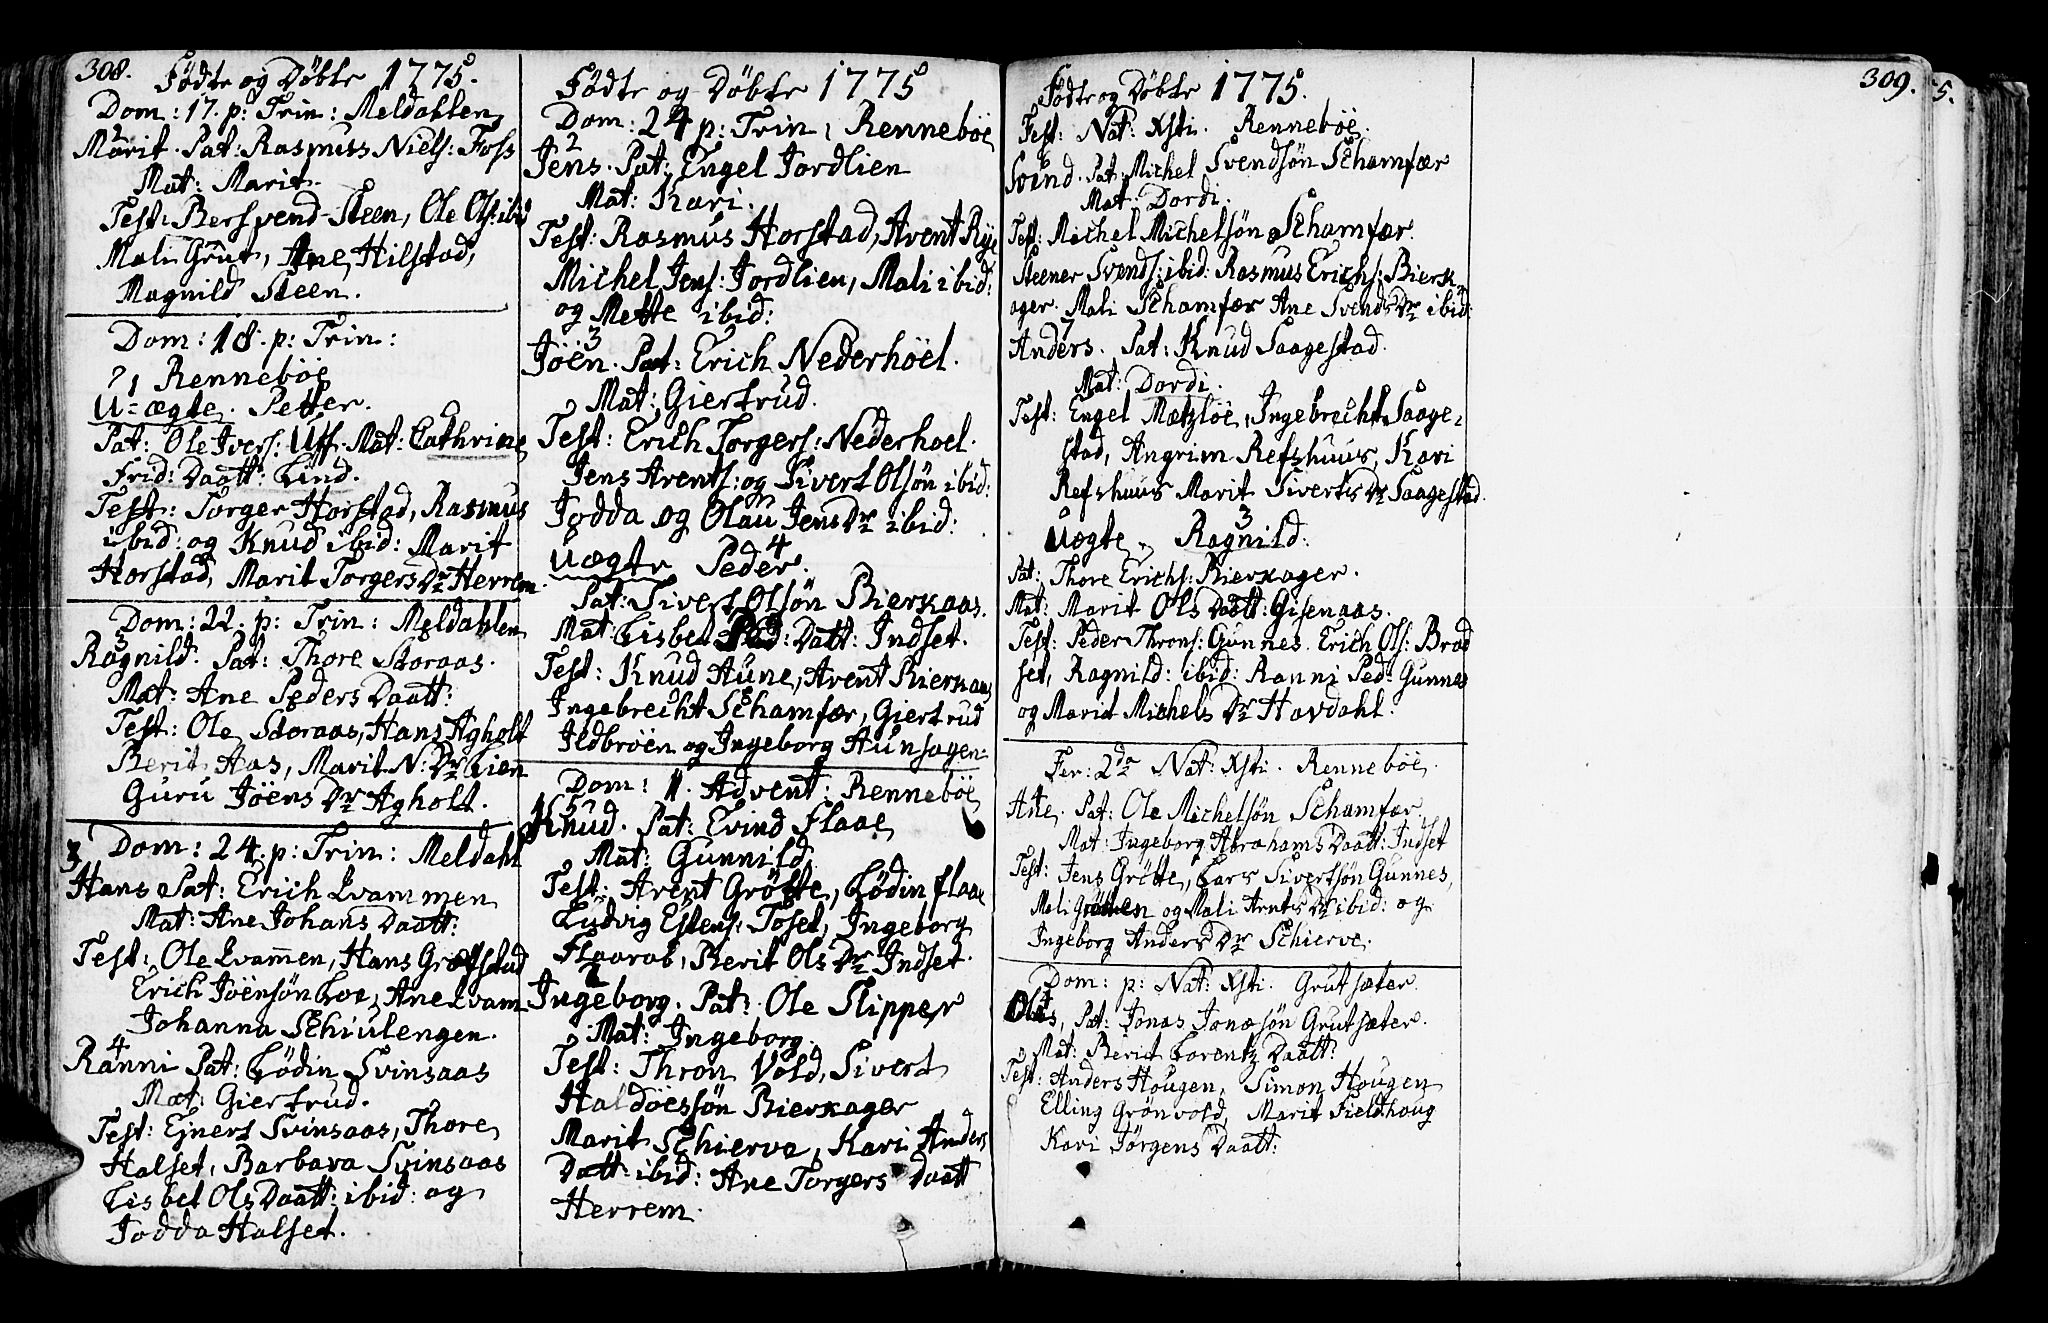 308.
Födte og Döbte 1775.
Dom: 17. p: Trin: Meldahlen
2
Marit. Pat: Rasmuss Niels: Foss
Mat: Marit.
Test: Bersvend Steen, Ole Ols: ibd
Mali Grut, Ane Hilstad,
Magnild Steen.
Dom: 18. p: Trin:
1 Renneböe
U=ægte. Petter.
Pat: Ole Ivers: Uff. Mat: Cathrine
Frid: Daatt: Lind.
Test: Torger Horstad, Rasmus
ibid: og Knud ibid: Marit
Horstad, Marit Torgers Dr Herrem
Dom: 22. p: Trin: Meldahlen
3
Ragnild. Pat: Thore Storaas.
Mat: Ane Peders Daatt:
Test: Ole Storaas, Hans Agholt
Berit Aas, Marit N: Dr Lien
Guru Jöens Dr Agholt.
Dom: 24. p: Trin: Meldahl
3
Hans Pat: Erich Qvammen
Mat: Ane Johans Daatt:
Test: Ole Qvam̄en, Hans Grotstad
Erich Jöensön Loe, Ane Qvam
Johanna Schiulengen.
4
Ranni Pat: Lödin Svinsaas
Mat: Giertrud.
Test: Ejnert Svinsaas, Thore
Halset, Barbara Svinsaas
Lisbet Ols Daatt: ibid: og
Jodda Halset.
Födte og Döbte 1775
Dom: 24 p: Trin: Renneböe
2
Jens. Pat: Engel Jordlien
Mat: Kari.
Test: Rasmus Horstad, Arent Rye
Michel Jens: Jordlien, Mali ibid:
og Mette ibid:
3
Jöen. Pat: Erich Nederhöel.
Mat: Giertrud.
Test: Erich Torgers: Nederhoel.
Jens Arents: og Sivert Olsön ibid:
Jodda og Olau Jens Dr ibid:
4
Uægte Peder.
Pat: Sivert Olsön Bierkaas.
Mat: Lisbet Ped: Datt: Indset.
Test: Knud Aune, Arent Bierkaas
Ingebrecht Schamfær, Giertrud
Ildbröen og Ingeborg Aunhagen.
Dom: 1. Advent: Renneböe
5
Knud. Pat: Evind Flaae
Mat: Gunnild
Test: Arent Grötte, Lödin Flaae
Ludvig Estens: Toset, Ingeborg
Flaarab, Berit Ols Dr Indset.
2
Ingeborg. Pat: Ole Slipper
Mat: Ingeborg.
Test: Thron Vold, Sivert
Haldöessön Bierkager
Marit Schierve, Kari Anders
Datt: ibid: Ane Torgers Daatt
Herrem.
309.
5.
Födte og Döbte 1775.
Fest: Nat: Xsti. Renneböe.
6
Svend. Pat: Michel Svendsön Schamfær
Mat: Dordi.
Test: Michel Michelsön Schamfær.
Steener Svends: ibid: Rasmus Erichs: Bierk
ager. Mali Schamfær Ane Svends Dr ibid:
7
Anders. Pat: Knud Saagestad.
Mat: Dordi.
Test: Engel Metzlöe, Ingebrecht Saage=
stad, Angrim Refshuus, Kari
Refshuus Marit Siverts Dr Saagestad.
3
Uægte Ragnild.
Pat: Thore Erichs: Bierkager.
Mat: Marit Ols Daatt: Gisenaas.
Test: Peder Throns: Gunnes. Erich Ols: Brad
set, Ragnild: ibid: Ranni Ped: Gunnes
og Marit Michels Dr Havdahl.
Fer: 2da Nat: Xsti. Renneböe.
Ane. Pat: Ole Michelsön Schamfær.
Mat: Ingeborg Abrahams Daatt: Indset
Test: Jens Grötte, Lars Sivertsön Gunnes,
Mali Grötten og Mali Arnts Dr ibid: og
Ingeborg Anders Dr Schierve.
Dom: p: Nat: Xsti. Grutsæter.
Pat: Jonas Jonasön Grutsæter.
Mat: Berit Lorentz Daatt:
Test: Anders Hougen, Simon Hougen
Elling Grönvold, Marit Fieldhoug
Kari Jörgens Daatt: